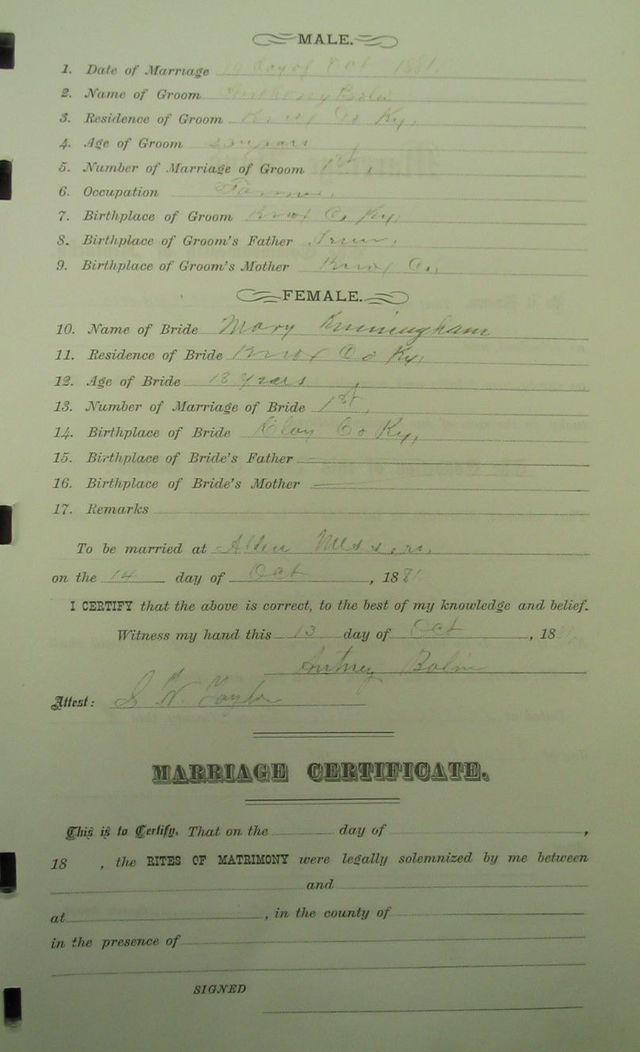 MALE.
1. Date of Marriage day of Oct 1881.
2. Name of Groom Anthony Bolin
3. Residence of Groom Knox Co Ky,
4. Age of Groom years
5. Number of Marriage of Groom 1st,
6. Occupation Farmer,
7. Birthplace of Groom Knox Co, Ky,
8. Birthplace of Groom's Father
9. Birthplace of Groom's Mother Knox Co,
FEMALE.
10. Name of Bride Mary
11. Residence of Bride Knox Co Ky,
12. Age of Bride 18 years
13. Number of Marriage of Bride 1st,
14. Birthplace of Bride Clay Co Ky,
15. Birthplace of Bride's Father
16. Birthplace of Bride's Mother
17. Remarks
To be married at
on the 14 day of Oct, 1881
I CERTIFY that the above is correct, to the best of my knowledge and belief.
Witness my hand this 13 day of Oct, 18
Antney Bolin
Attest:
MARRIAGE CERTIFICATE.
This is to Certify, That on the day of ,
18 , the RITES OF MATRIMONY were legally solemnized by me between
and
at , in the county of
in the presence of
SIGNED